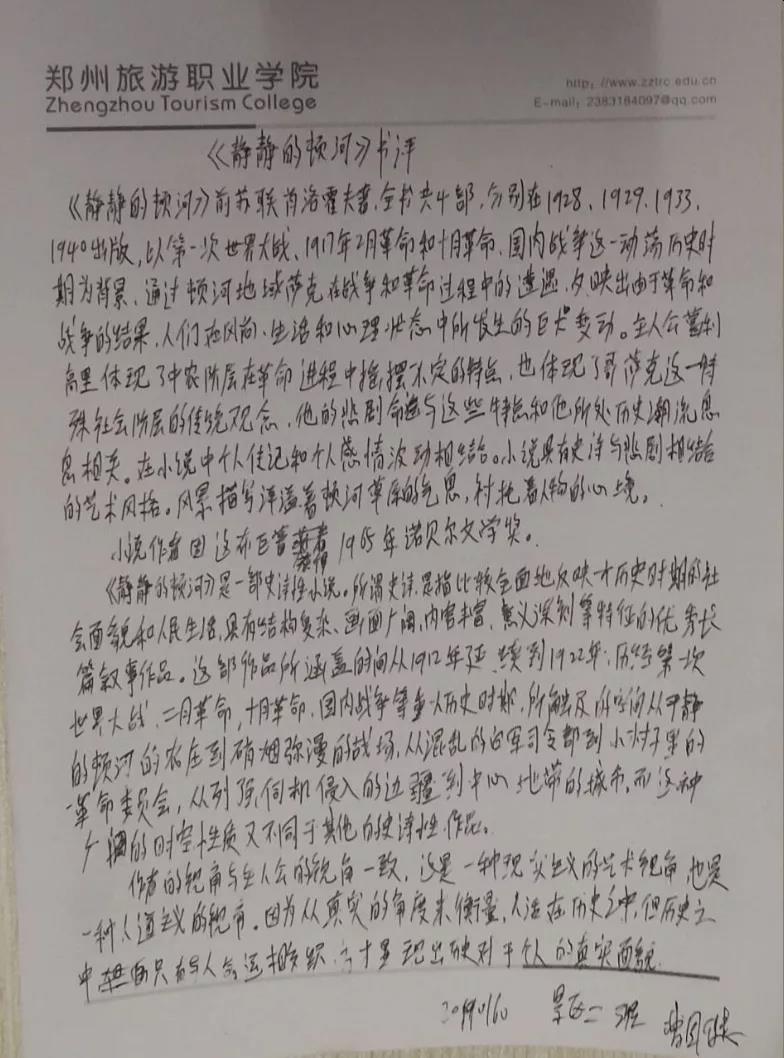 郑州旅游职业学院
Zhengzhou Tourism College
http://www.zztrc.edu.cn
E-mail: 2383184097@qq.com
《静静的顿河》书评
《静静的顿河》前苏联肖洛霍夫著,全书共4部,分别在1928、1929、1933、
1940出版,以第一次世界大战、1917年2月革命和十月革命、国内战争这一动荡历史时
期为背景、通过顿河地域萨克在战争和革命过程中的遭遇,夕映出由于革命和
战争的结果,人们在风尚、生活和心理状态中所发生的巨大变动。主人公葛利
高里体现了中农阶层在革命进程中摇摆不定的特点,也体现了哥萨克这一特
殊社会阶层的传统观念,他的悲剧命运与这些特点和他所处历史潮流息
息相关。在小说中个人传记和个人感情波动相结合。小说具有史诗与悲剧相结合
的艺术风格。风景描写洋溢着顿河草原的气息,衬托着人物的心境。
小说作者因这布巨著 1965年诺贝尔文学奖。
《静静的顿河》是一部史诗性小说。所谓史诗是指比较全面地反映 历史时期的社
会面貌和人民生活,具有结构复杂、画面广阔,内容丰富、意义深刻等特征的优秀长
篇叙事作品。这部作品所涵盖的时间从1912年延续到1922年,历经第一次
世界大战、二月革命,十月革命,国内战争等重大历史时期,所触及的空间从平静
的顿河的农庄到硝烟弥漫的战场,从混乱的白军司令部到小村子里的
革命委员会,从列强伺机侵入的边疆到中心地带的城市。而这种
广阔的时空性质又不同于其他的史诗性作品。
作者的视角与主人公的视角一致,这是一种现实主义的艺术视角,也是
一种人道主义的视角。因为从真实的角度来衡量,人活在历史之中,但历史之
中 只有与人命运相交织 才 显现出历史对于个人的真实面貌.
二班